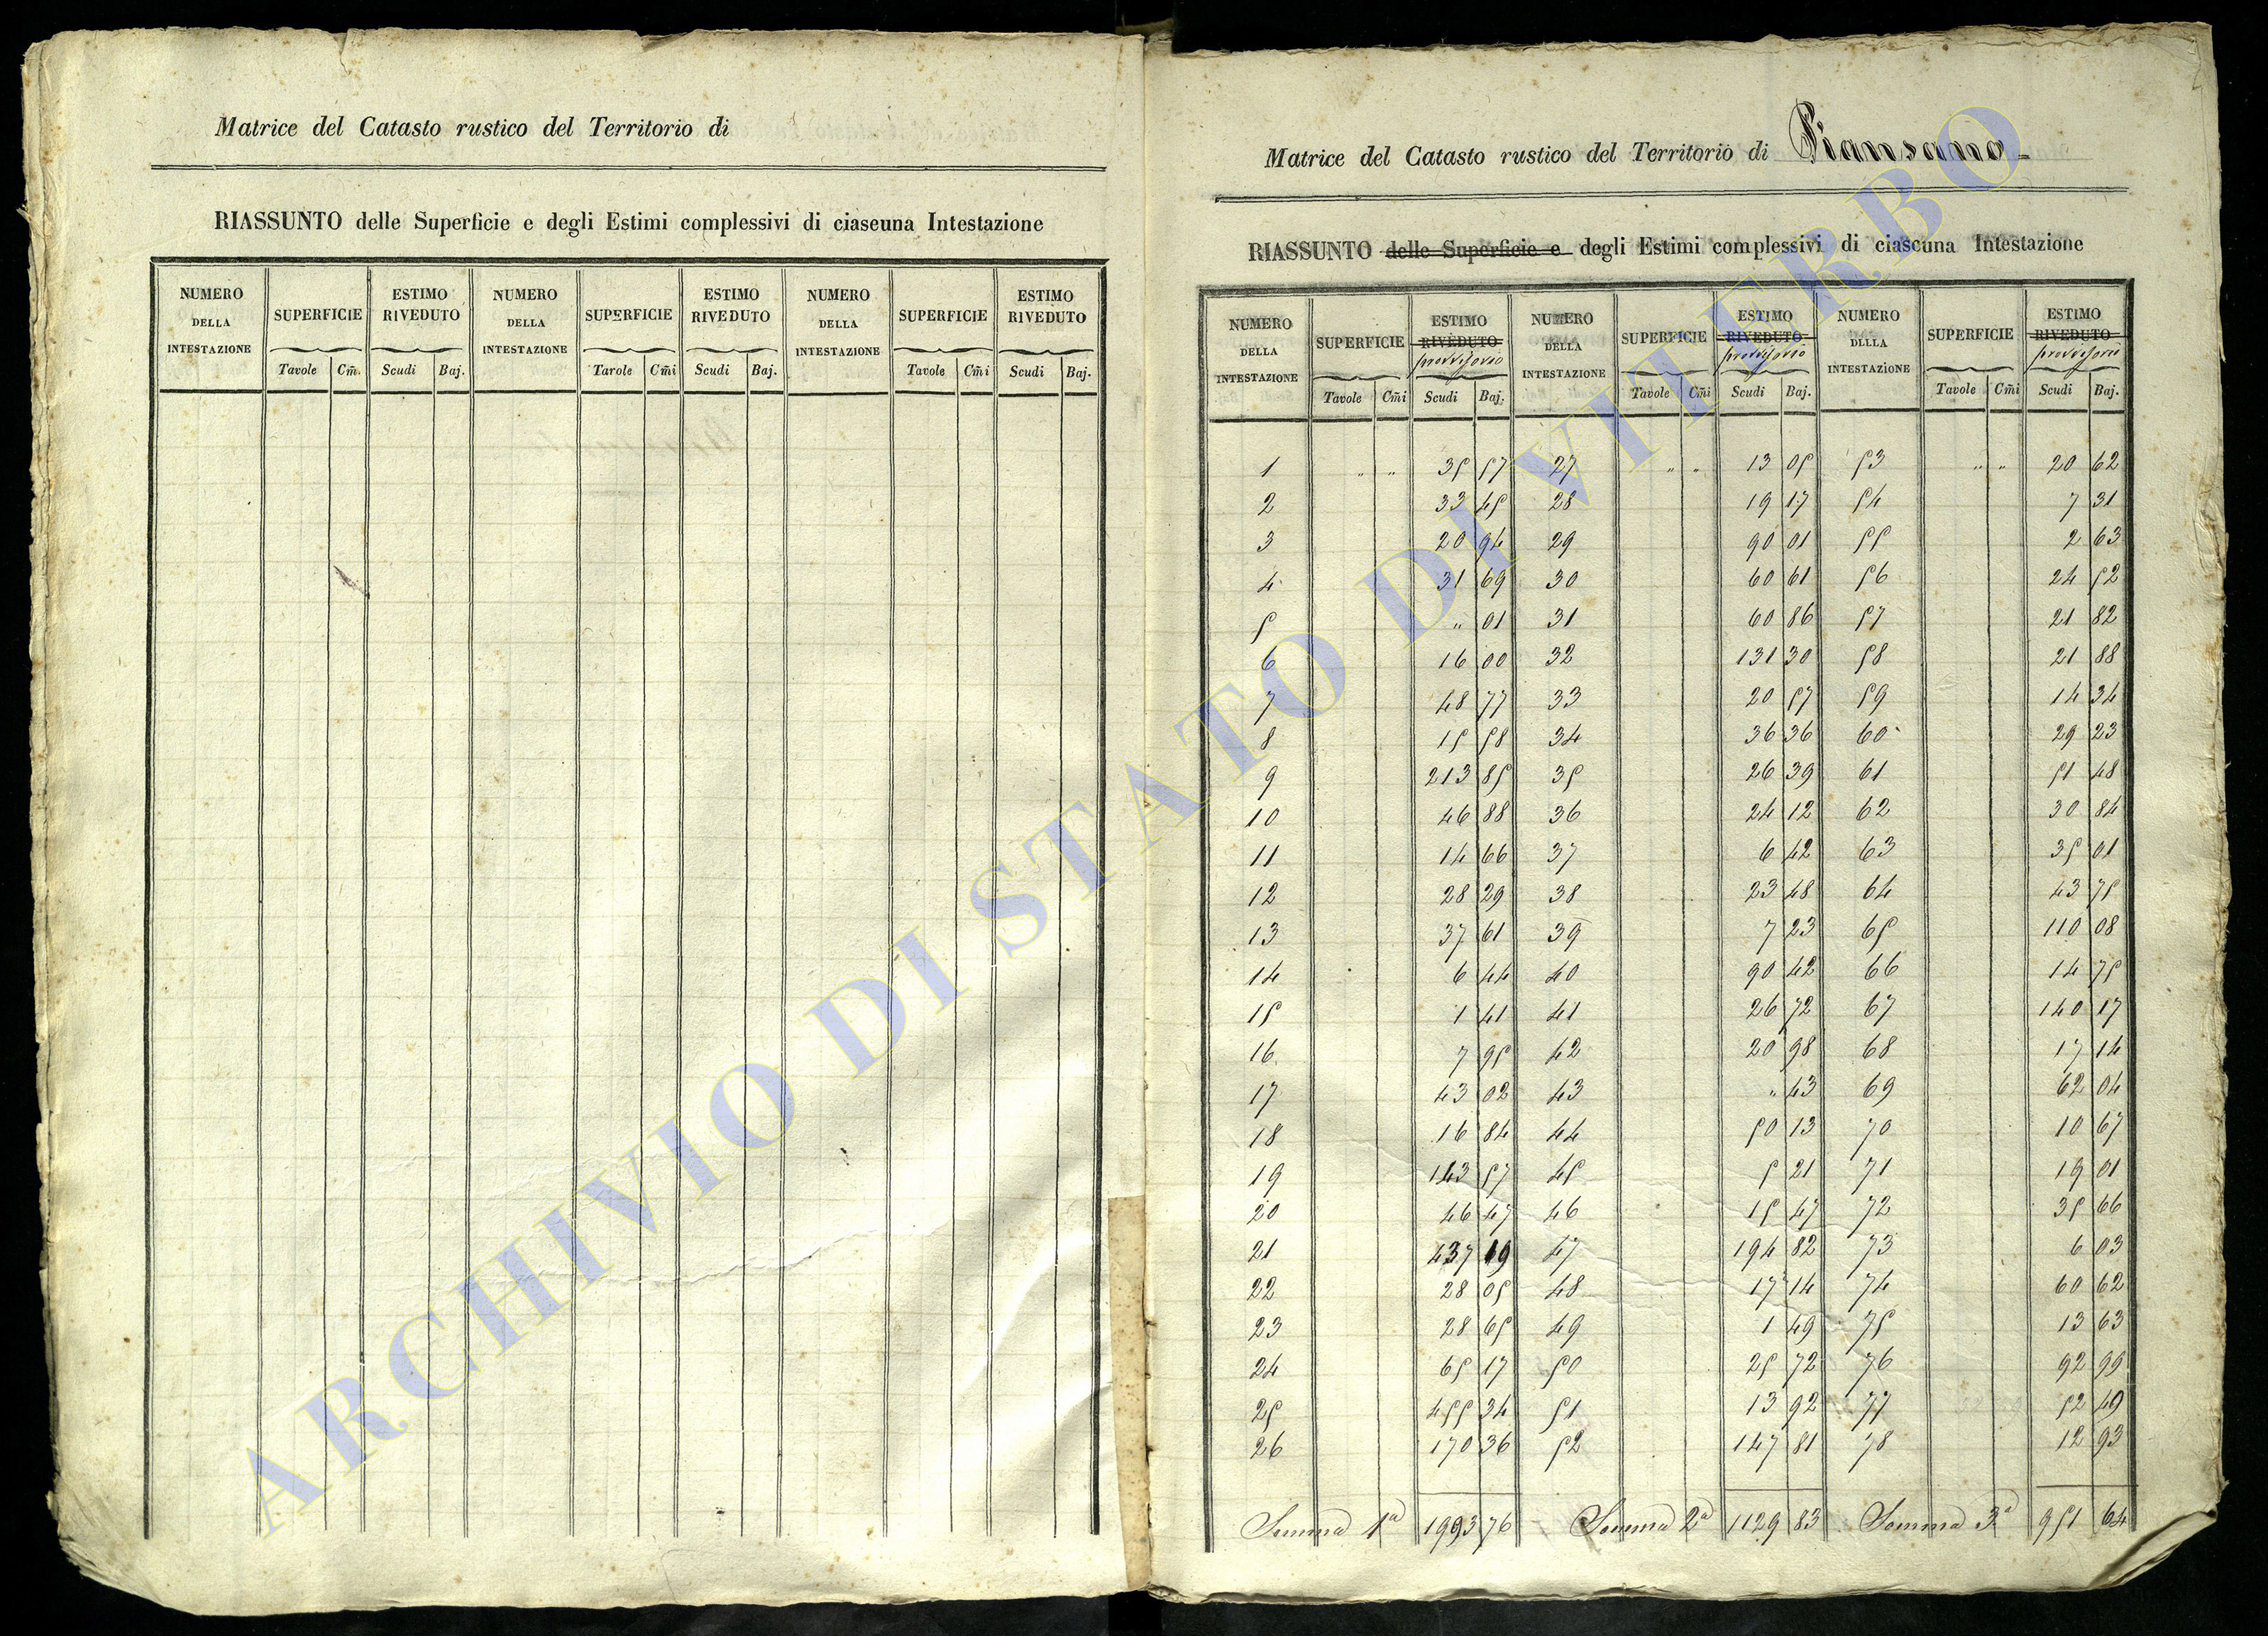 Matrice del Catasto rustico del Territorio di
RIASSUNTO delle Superficie e degli Estimi complessivi di ciaseuna Intestazione
NUMERO DELLA INTESTAZIONE SUPERFICIE ESTIMO RIVEDUTO NUMERO DELLA INTESTAZIONE SUPERFICIE ESTIMO RIVEDUTO NUMERO DELLA INTESTAZIONE SUPERFICIE ESTIMO RIVEDUTO
Tavole Cm̃. Scudi Baj. Tarole Cm̃i Scudi Baj. Tavole Cm̃i Scudi Baj.
Matrice del Catasto rustico del Territorio di Piansano
RIASSUNTO delle Superficie e degli Estimi complessivi di ciascuna Intestazione
NUMERO DELLA INTESTAZIONE SUPERFICIE ESTIMO RIVEDUTO provvisorio NUMERO DELLA INTESTAZIONE SUPERFICIE ESTIMO RIVEDUTO provvisorio NUMERO DELLA INTESTAZIONE SUPERFICIE ESTIMO RIVEDUTO provvisorio
Tavole Cm̃i Scudi Baj. Tavole Cm̃i Scudi Baj. Tavole Cm̃i Scudi Baj.
1 " " 35 57 27 " " 13 05 53 " " 20 62
2 33 45 28 19 17 54 7 31
3 20 94 29 90 01 55 2 63
4 31 69 30 60 61 56 24 52
5 " 01 31 60 86 57 21 82
6 16 00 32 131 30 58 21 88
7 48 77 33 20 57 59 14 34
8 15 58 34 36 36 60 29 23
9 213 85 35 26 39 61 51 48
10 46 88 36 24 12 62 30 84
11 14 66 37 6 42 63 35 01
12 28 29 38 23 48 64 43 75
13 37 61 39 7 23 65 110 08
14 6 44 40 90 42 66 14 75
15 1 41 41 26 72 67 140 17
16 7 95 42 20 98 68 17 14
17 43 02 43 " 43 69 62 04
18 16 84 44 50 13 70 10 67
19 143 57 45 5 21 71 19 01
20 46 47 46 15 47 72 35 66
21 437 19 47 194 82 73 6 03
22 28 05 48 17 14 74 60 62
23 28 65 49 1 49 75 13 63
24 65 17 50 25 72 76 92 99
25 455 34 51 13 92 77 52 49
26 170 36 52 147 81 78 12 93
Somma 1ª 1993 76 Somma 2ª 1129 83 Somma 3ª 951 64
ARCHIVIO DI STATO DI VITERBO